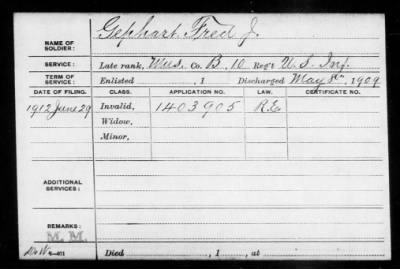 NAME OF SOLDIER: Gephart Fred J.
SERVICE: Late rank, Mus. Co. B, 10 Reg't U.S. Inf.
TERM OF SERVICE: Enlisted , 1 Discharged May 8th, 1909
DATE OF FILING. CLASS. APPLICATION NO. LAW. CERTIFICATE NO.
1912 June 29 Invalid, 1403905 R.E.
Widow,
Minor,
ADDITIONAL SERVICES:
REMARKS:
M. M.
Died , 1 , at